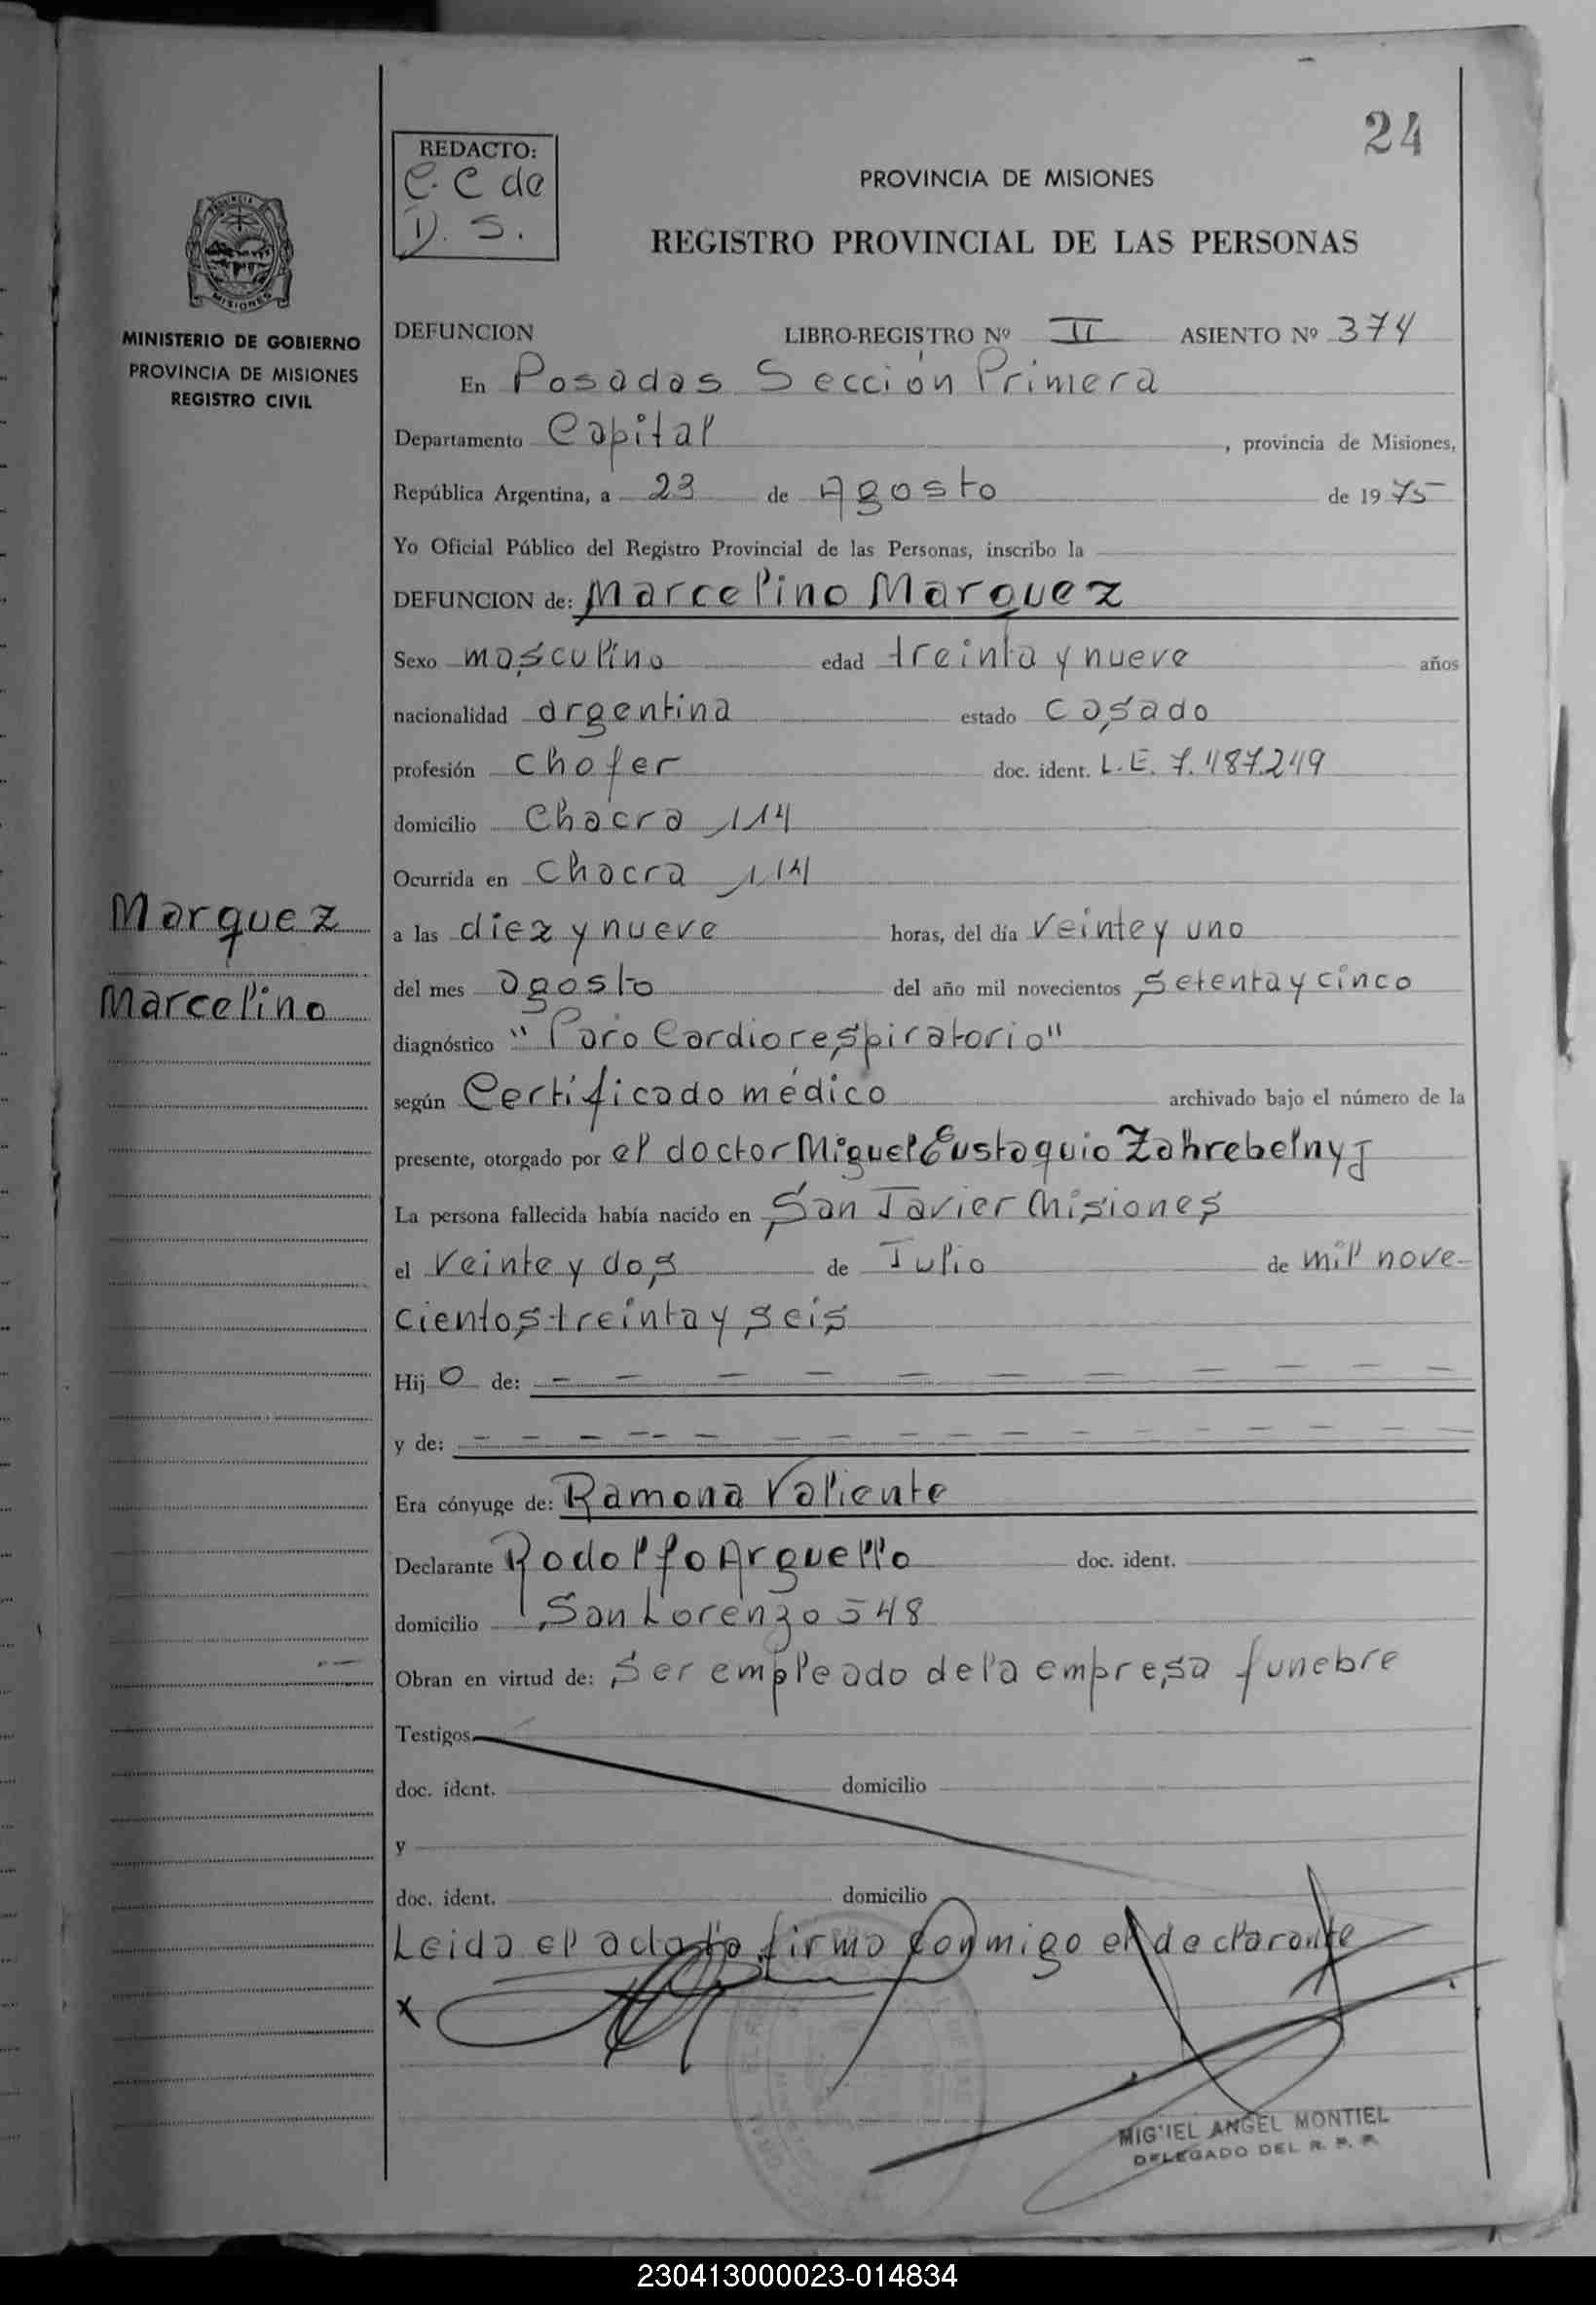 24
REDACTO:
C. C de
D. S.
PROVINCIA DE MISIONES
REGISTRO PROVINCIAL DE LAS PERSONAS
PROVINCIA
MISIONES
MINISTERIO DE GOBIERNO
PROVINCIA DE MISIONES
REGISTRO CIVIL
DEFUNCION LIBRO-REGISTRO Nº II ASIENTO Nº 374
En Posadas Sección Primera
Departamento Capital, provincia de Misiones,
República Argentina, a 23 de Agosto de 1975
Yo Oficial Público del Registro Provincial de las Personas, inscribo la
DEFUNCION de: Marcelino Marquez
Sexo masculino edad treinta y nueve años
nacionalidad argentina estado casado
profesión chofer doc. ident. L.E. 7.487.249
domicilio Chacra 114
Ocurrida en chacra 114
Marquez
Marcelino
a las diez y nueve horas, del día veinte y uno
del mes agosto del año mil novecientos setenta y cinco
diagnóstico "Paro Cardiorespiratorio"
según Certificado médico archivado bajo el número de la
presente, otorgado por el doctor Miguel Eustaquio Zahrebelnyj
La persona fallecida había nacido en San Javier Misiones
el veinte y dos de Julio de mil nove-
cientos treinta y seis
Hijo de: - - - - - - - - - -
y de: - - - - - - - - - - - - - - -
Era cónyuge de: Ramona Valiente
Declarante Rodolfo Arguello doc. ident.
domicilio San Lorenzo 548
Obran en virtud de: ser empleado de la empresa funebre
Testigos
doc. ident. domicilio
y
doc. ident. domicilio
Leida el acta la firma conmigo el declarante
x
MIGUEL ANGEL MONTIEL
DELEGADO DEL R. P. P.
230413000023-014834